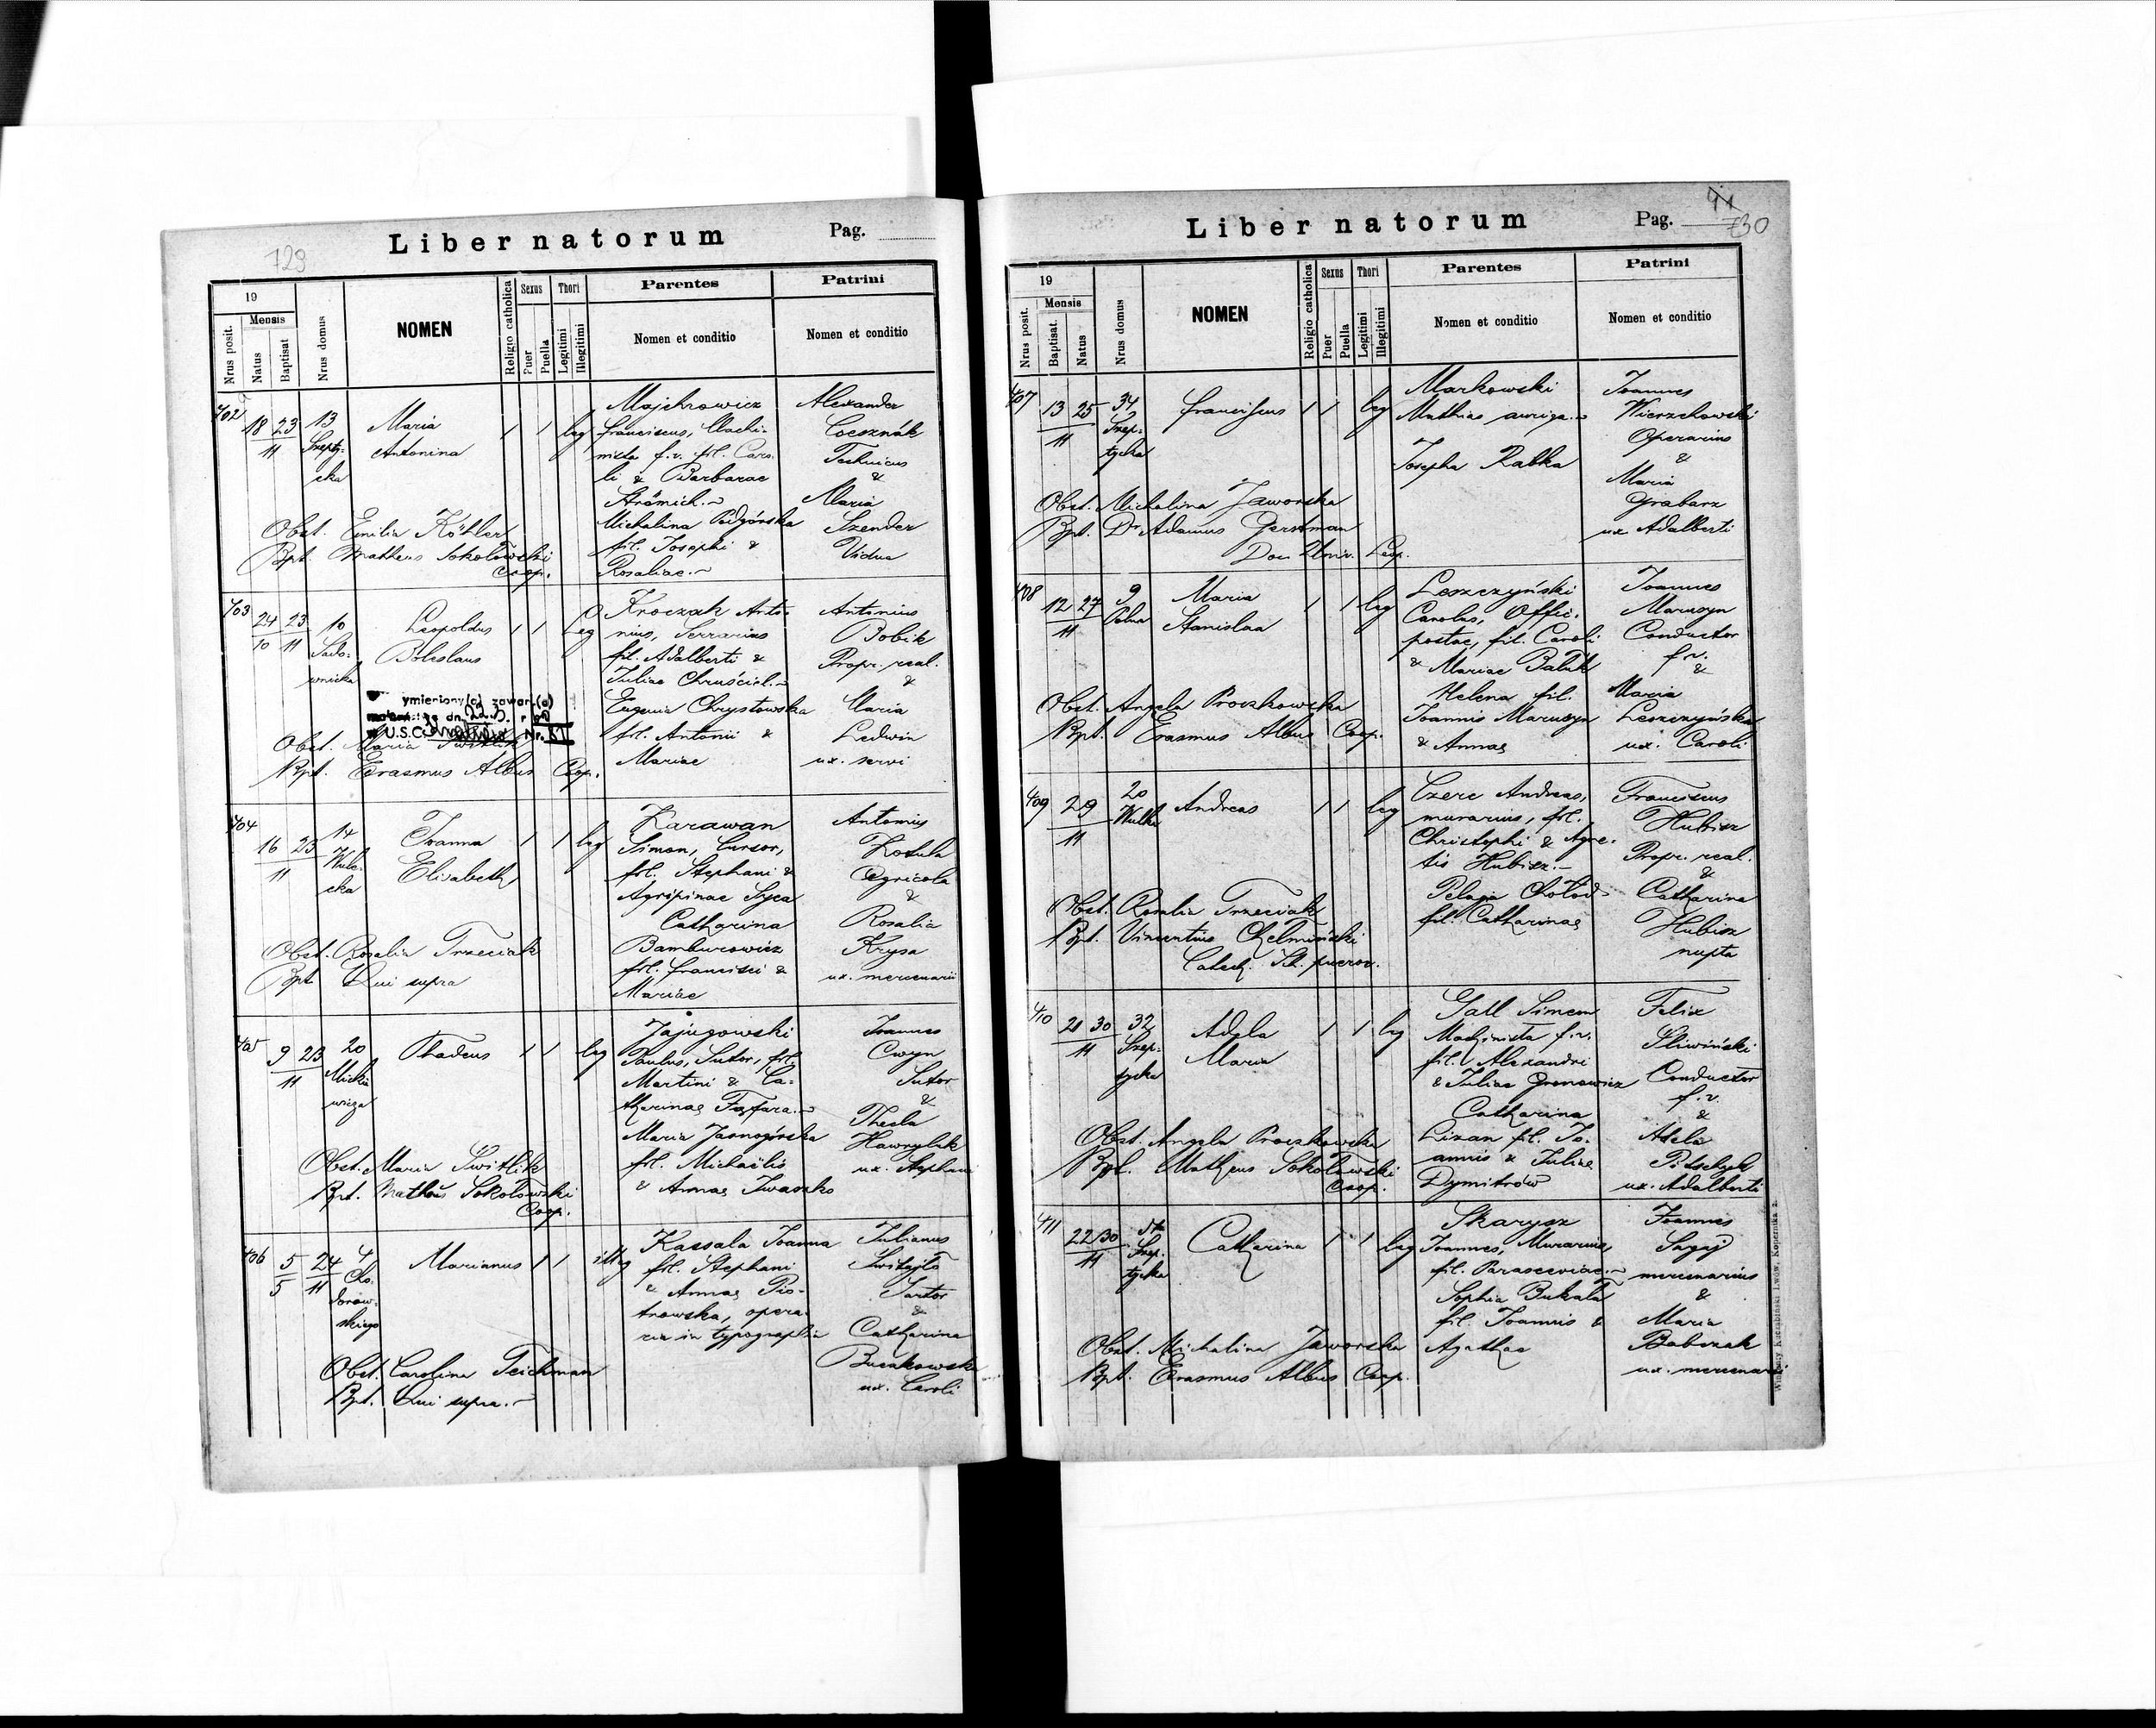 729
Liber natorum
Pag.
19
Mensis
Nrus posit.
Natus
Baptisat
Nrus domus
NOMEN
Religio catholica
Sexus
Puer
Puella
Thori
Legitimi
Illegitimi
Parentes
Nomen et conditio
Patrini
Nomen et conditio
702
18 23
11
13
Szepty-
cka
Maria
Antonina
1 1 leg
Majchrowicz
Franciscus, Machi-
nista f.v. fil. Caro-
li & Barbarae
Strömich.-
Michalina Podgórska
fil. Josephi &
Rosaliae.-
Alexander
Technicus
&
Maria
Szender
Vidua
Obst. Emilia Köhler
Bpt. Matheus Sokołowski
Coop.
703
24 23
10 11
10
Sado-
wnicka
Leopoldus
Boleslaus
1 1 Leg
Kroczak Anto-
nius, Serrarius
fil. Adalberti &
Juliae Chruściel.-
Eugenia Chrystowska
fil. Antonii &
Mariae
Antonius
Bobik
Propr. real.
&
Maria
Ledwin
ux. servi
ymieniony(a) zawarł(a)
U.S.C. Nr.
Obst. Maria Świtlik
Bpt. Erasmus Albus Coop.
704
16 23
11
14
Wule-
cka
Joanna
Elisabeth
1 1 leg
Karawan
Simon, Cursor,
fil. Stephani &
Agripinae Syca
Catharina
Bamburowicz
fil. Francisci &
Mariae
Antonius
Kotula
Agricola
&
Rosalia
Krysa
ux. mercenarii
Obst. Rosalia Trzeciak
Bpt Qui supra
705
9 23
11
20
Mickie
wicza
Thadeus
1 1 leg
Zajugowski
Paulus, Sutor, fil.
Martini & Ca-
tharinae Fafara.-
Maria Jasnogórska
fil. Michaëlis
& Annae Iwaszko
Joannes
Cwyn
Sutor
&
Thecla
Hawrylak
ux. Stephani
Obst. Maria Świtlik
Bpt. Matheus Sokołowski
Coop.
706
5 24
5 11
4
Cho-
dorow-
skiego
Marianus
1 1 illeg
Kassala Joanna
fil. Stephani
& Annae Pio-
trowska, opera-
ria in typographia
Julianus
Świtajło
Sartor
&
Catharina
Buczkowska
ux. Caroli
Obst. Carolina Teichman
Bpt. Qui supra.-
91
730
Liber natorum
Pag.
19
Mensis
Nrus posit.
Baptisat.
Natus
Nrus domus
NOMEN
Religio catholica
Sexus
Puer
Puella
Thori
Legitimi
Illegitimi
Parentes
Nomen et conditio
Patrini
Nomen et conditio
707
13 25
11
34
Szep-
tycka
Franciscus
1 1 leg
Markowski
Mathias auriga.-
Josepha Rabka
Joannes
Wierzchowski
Operarius
&
Maria
Grabarz
ux Adalberti
Obst. Michalina Jaworska
Bpt. Dr. Adamus Gerstman
Doc Univ. Leop.
708
12 27
11
9
Polna
Maria
Stanislaa
1 1 leg
Leszczyński
Carolus, Offic.
postae, fil. Caroli
& Mariae Balük
Helena fil.
Joannis Maruszyn
& Annae
Joannes
Maruszyn
Conductor
f.v.
&
Maria
Leszczyńska
ux. Caroli
Obst. Angela Proczkowska
Bpt. Erasmus Albus Coop.
709
29
11
20
Wulka
Andreas
1 1 leg
Czerc Andreas,
murarius, fil.
Christophi & Agne-
tis Hubisz.-
Pelagia Chołod
fil. Catharinae
Franciscus
Hubisz
Propr. real.
&
Catharina
Hubisz
nupta
Obst. Rosalia Trzeciak
Bpt. Vincentius Chełmiński
Catech. Sch. pueror.
710
21 30
11
32
Szep-
tycka
Adela
Maria
1 1 leg
Gall Simeon
Machinista f.v.
fil. Alexandri
& Juliae Gronowicz
Catharina
Lizan fil. Jo-
annis & Juliae
Dymitrów
Felix
Śliwiński
Conductor
f.v.
&
Adela
ux. Adalberti
Obst. Angela Proczkowska
Bpt. Matheus Sokołowski
Coop.
711
22 30
11
Szep-
tycka
Catharina
1 1 leg
Skarysz
Joannes, Murarius,
fil. Parasceviae.-
Sophia Bukała
fil. Joannis &
Agathae
Joannes
mercenarius
&
Maria
Babczak
ux. mercenarii
Obst. Michalina Jaworska
Bpt. Erasmus Albus Coop.